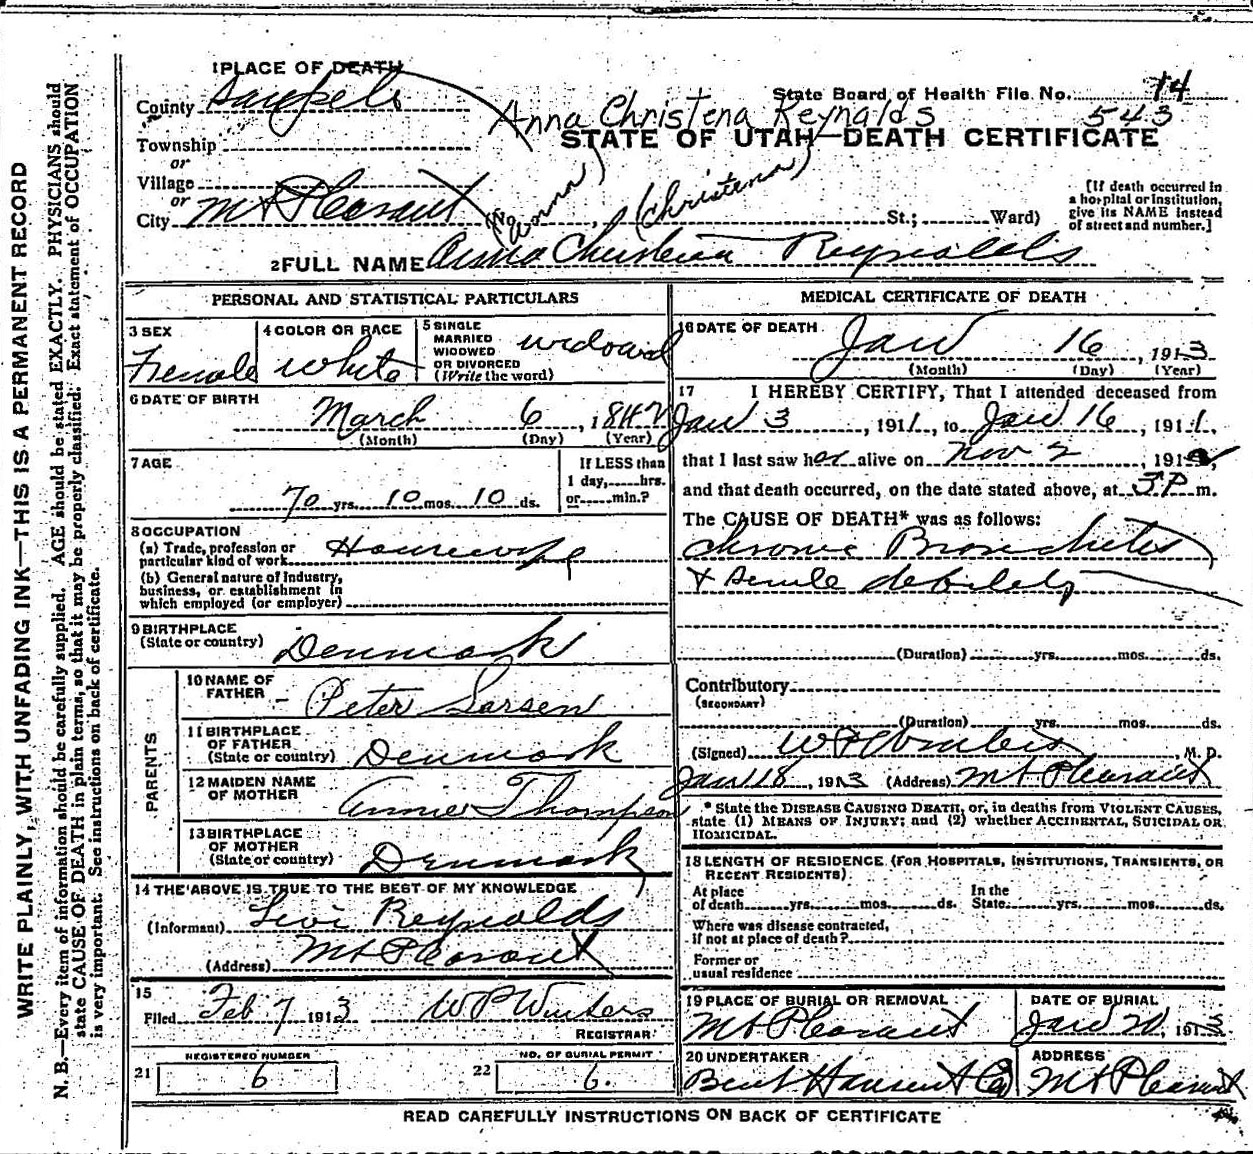 1 PLACE OF DEATH
County Sanpete
State Board of Health File No. 14
Anna Christena Reynalds 543
STATE OF UTAH—DEATH CERTIFICATE
Township
or
Village
or
City Mt Pleasant (No. , St.; Ward)
(Anna) (Christena)
[If death occurred in
a hospital or institution,
give its NAME instead
of street and number.]
2 FULL NAME Anna Christena Reynolds
PERSONAL AND STATISTICAL PARTICULARS
3 SEX
Female
4 COLOR OR RACE
White
5 SINGLE
MARRIED
WIDOWED
OR DIVORCED
(Write the word)
widowed
6 DATE OF BIRTH
March 6, 1842
(Month) (Day) (Year)
7 AGE
70 yrs. 10 mos. 10 ds.
If LESS than
1 day, hrs.
or min.?
8 OCCUPATION
(a) Trade, profession or
particular kind of work Housewife
(b) General nature of Industry,
business, or establishment in
which employed (or employer)
9 BIRTHPLACE
(State or country) Denmark
PARENTS
10 NAME OF
FATHER - Peter Larsen
11 BIRTHPLACE
OF FATHER
(State or country) Denmark
12 MAIDEN NAME
OF MOTHER Annie Thompson
13 BIRTHPLACE
OF MOTHER
(State or country) Denmark
14 THE ABOVE IS TRUE TO THE BEST OF MY KNOWLEDGE
(Informant) Levi Reynolds
(Address) Mt Pleasant
15
Filed Feb 7 1913 W P Winters
REGISTRAR
REGISTERED NUMBER
21 6
NO. OF BURIAL PERMIT
22 6.
MEDICAL CERTIFICATE OF DEATH
16 DATE OF DEATH
Jan 16, 1913
(Month) (Day) (Year)
17 I HEREBY CERTIFY, That I attended deceased from
Jan 3, 1911, to Jan 16, 1911,
that I last saw her alive on Nov 2, 191
and that death occurred, on the date stated above, at 3 P m.
The CAUSE OF DEATH* was as follows:
Chronic Bronchites
+ Senile debility
(Duration) yrs. mos. ds.
Contributory
(SECONDARY)
(Duration) yrs. mos. ds.
(Signed) W P Winters M. D.
Jan 18, 1913 (Address) Mt Pleasant
* State the DISEASE CAUSING DEATH, or, in deaths from VIOLENT CAUSES,
state (1) MEANS OF INJURY; and (2) whether ACCIDENTAL, SUICIDAL OR
HOMICIDAL.
18 LENGTH OF RESIDENCE (FOR HOSPITALS, INSTITUTIONS, TRANSIENTS, OR
RECENT RESIDENTS)
At place
of death yrs. mos. ds.
In the
State yrs. mos. ds.
Where was disease contracted,
if not at place of death?
Former or
usual residence
19 PLACE OF BURIAL OR REMOVAL
Mt Pleasant
DATE OF BURIAL
Jan 20, 1913
20 UNDERTAKER
Bent Hansen & Co
ADDRESS
Mt Pleasant
READ CAREFULLY INSTRUCTIONS ON BACK OF CERTIFICATE
WRITE PLAINLY, WITH UNFADING INK—THIS IS A PERMANENT RECORD
N. B.—Every item of information should be carefully supplied. AGE should be stated EXACTLY. PHYSICIANS should
state CAUSE OF DEATH in plain terms, so that it may be properly classified. Exact statement of OCCUPATION
is very important. See instructions on back of certificate.